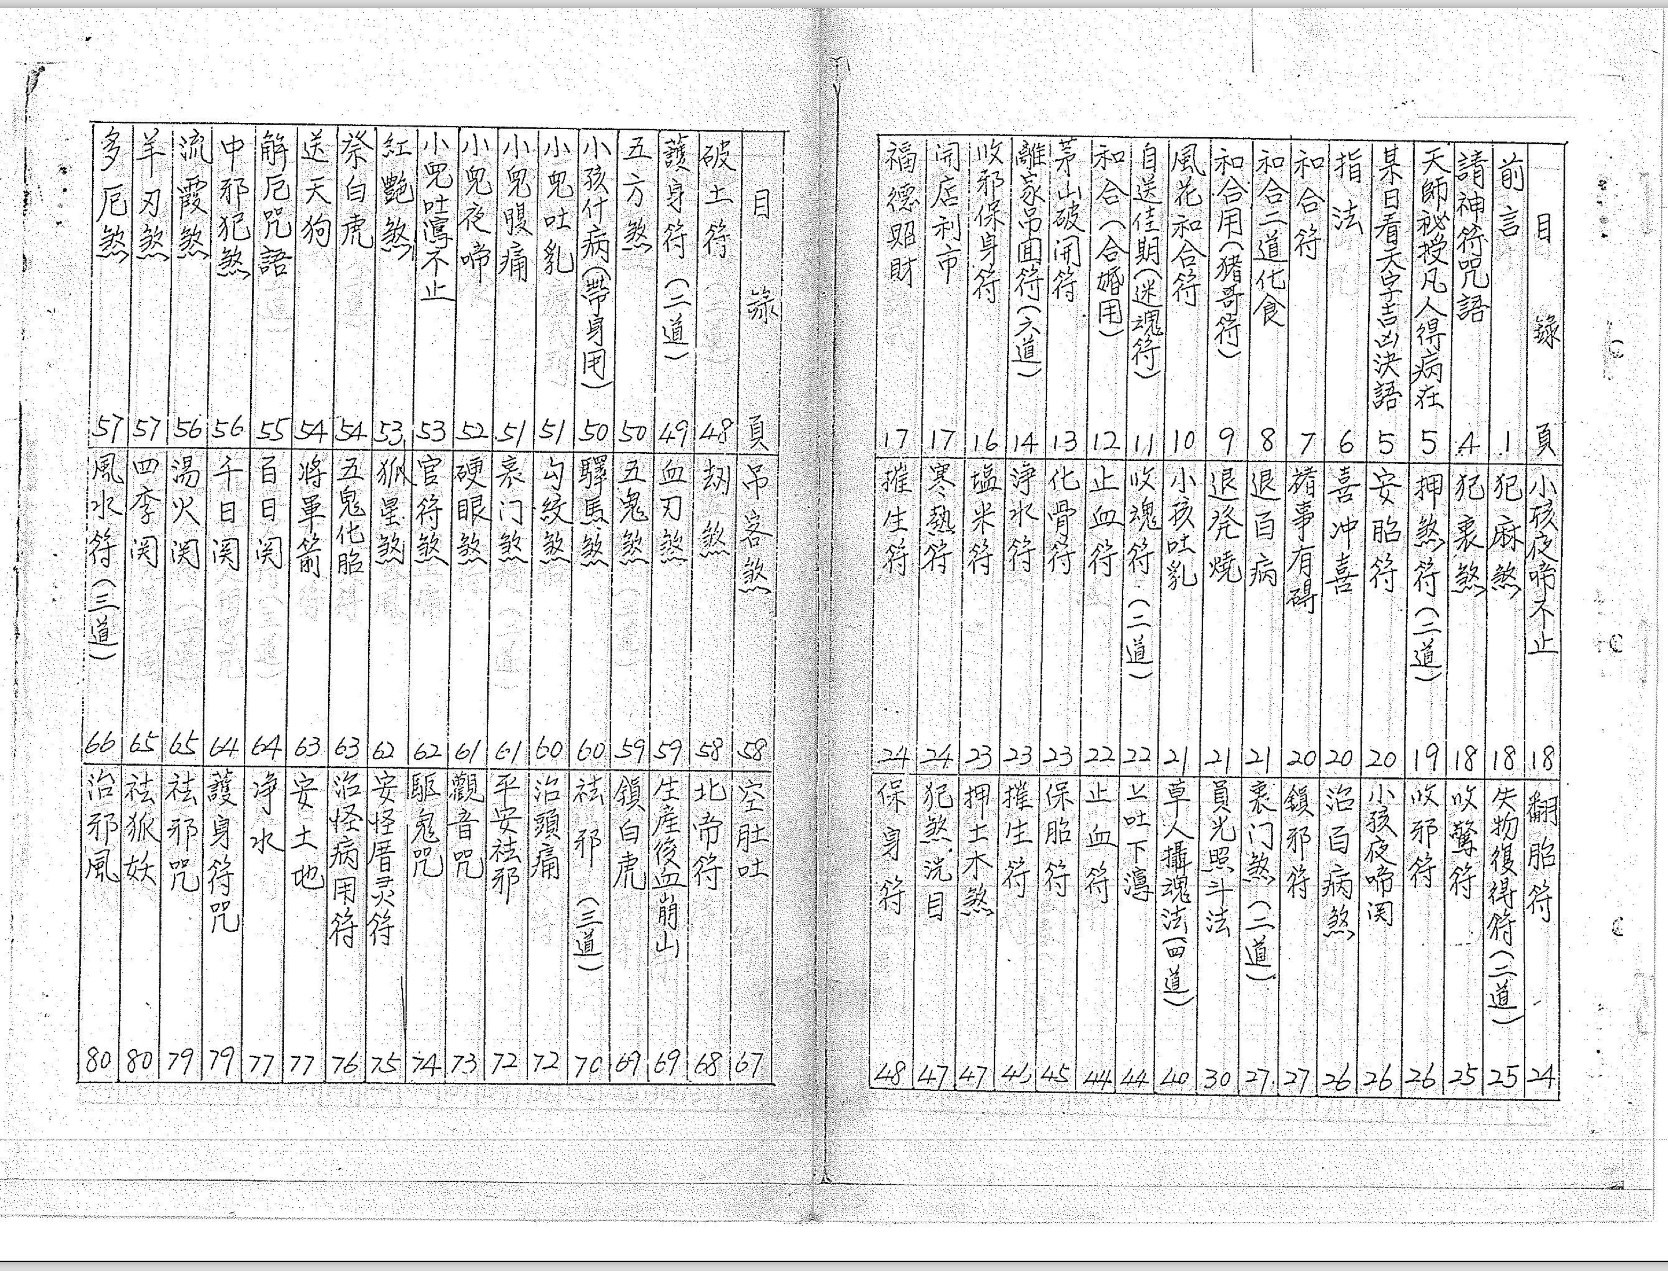 目 錄 頁
前言 1
請神符咒語 4
天師祕授凡人得病在 5
某日看天字吉凶決語 5
指法 6
和合符 7
和合二道化食 8
和合用(猪哥符) 9
風花和合符 10
自送佳期(迷魂符) 11
和合(合婚用) 12
茅山破閞符 13
離家吊囬符(六道) 14
收邪保身符 16
開店利市 17
福德貽財 17
小孩夜啼不止 18
犯麻煞 18
犯喪煞 18
押煞符(二道) 19
安胎符 20
喜冲喜 20
諸事有碍 20
退百病 21
退発燒 21
小孩吐乳 21
收魂符(二道) 22
止血符 22
化骨符 23
淨水符 23
塩米符 23
寒熱符 24
摧生符 24
翻胎符 24
失物復得符(二道) 25
收驚符 25
收邪符 26
小孩夜啼関 26
治百病煞 26
鎖邪符 27
喪门煞(二道) 27
員光照斗法 30
草人攝魂法(四道) 40
上吐下瀉 44
止血符 44
保胎符 45
摧生符 46
押土木煞 47
犯煞洗目 47
保身符 48
目 錄 頁
破土符 48
護身符(二道) 49
五方煞 50
小孩什病(帶身用) 50
小兒吐乳 51
小兒腹痛 51
小兒夜啼 52
小兒吐瀉不止 53
紅艷煞 53
祭白虎 54
送天狗 54
解厄咒語 55
中邪犯煞 56
流霞煞 56
羊刃煞 57
多厄煞 57
吊客煞 58
刼煞 58
血刃煞 59
五鬼煞 59
驛馬煞 60
勾絞煞 60
喪门煞 61
硬眼煞 61
官符煞 62
狐星煞 62
五鬼化胎 63
將軍箭 63
百日関 64
千日関 64
湯火関 65
四季関 65
風水符(三道) 66
空肚吐 67
北帝符 68
生產後血崩山 69
鎖白虎 69
祛邪(三道) 70
治頭痛 72
平安祛邪 72
觀音咒 73
驅鬼咒 74
安怪厝灵符 75
治怪病用符 76
安土地 77
净水 77
護身符咒 79
祛邪咒 79
祛狐妖 80
治邪風 80